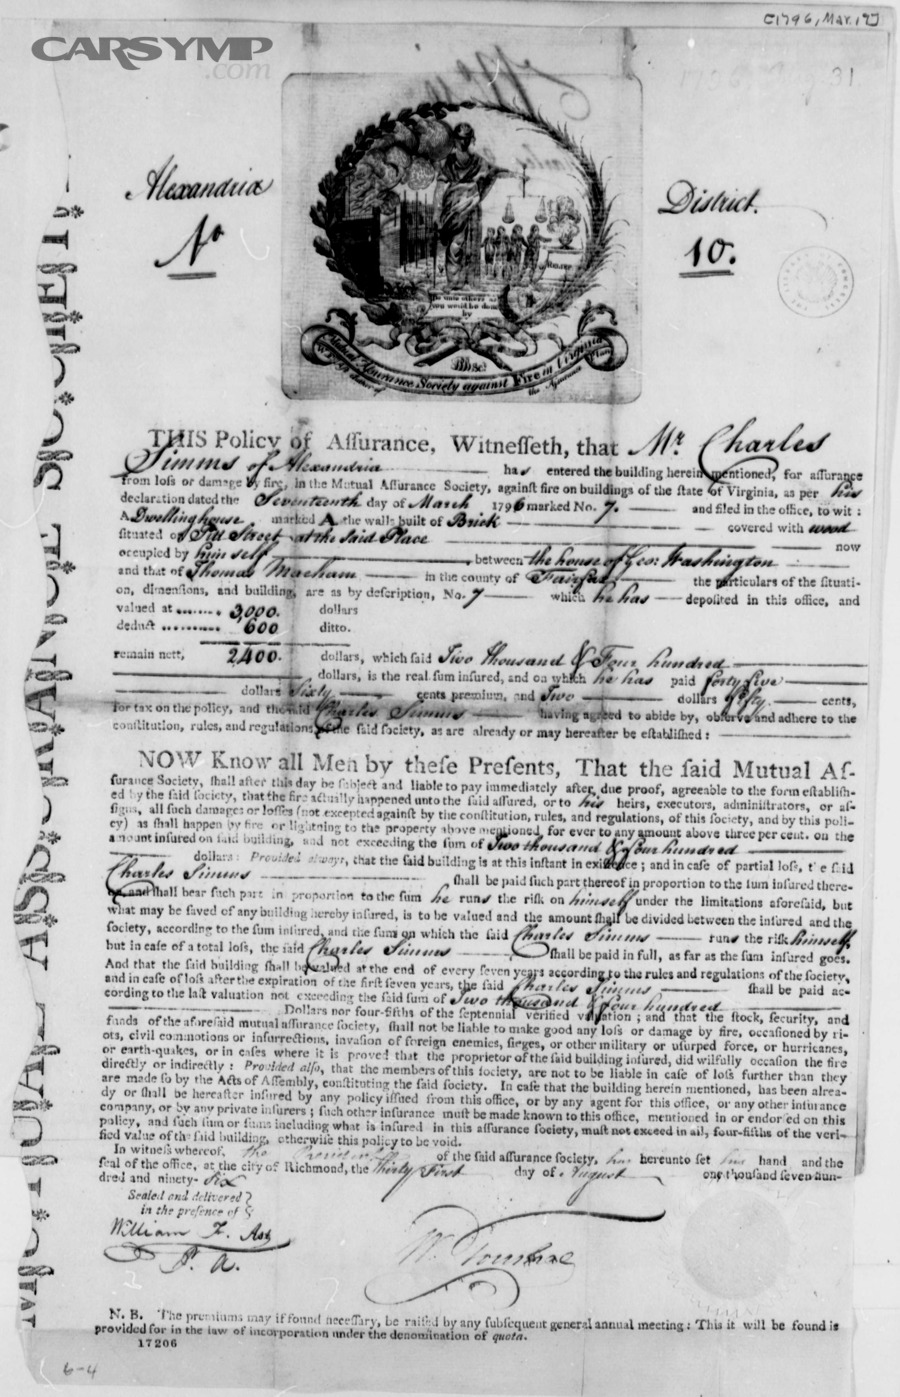 [1796, Mar. 17]
CARSYMP
.com
1796, Aug 31
Alexandria
District.
No
10.
Do unto others as
you would be done
by
Mutual Assurance Society against Fire in Virginia
THIS Policy of Aſſurance, Witneſſeth, that Mr. Charles
Simms of Alexandria has entered the building herein mentioned, for aſſurance
from loſs or damage by fire, in the Mutual Aſſurance Society, againſt fire on buildings of the ſtate of Virginia, as per his
declaration dated the Seventeenth day of March 1796 marked No. 7. and filed in the office, to wit :
A Dwelling house marked A the walls built of Brick covered with wood
ſituated on Pitt Street at the said Place now
occupied by him self between the house of Geo: Washington
and that of Thomas Macham in the county of Fairfax the particulars of the ſituati-
on, dimenſions, and building, are as by deſcription, No. 7 which he has depoſited in this office, and
valued at ........ 3,000. dollars
deduct .......... 600 ditto.
remain nett, 2400. dollars, which ſaid Two thousand & Four hundred
dollars, is the real ſum inſured, and on which he has paid forty five
dollars Sixty cents premium, and Two dollars fifty cents,
for tax on the policy, and the ſaid Charles Simms having agreed to abide by, obſerve and adhere to the
conſtitution, rules, and regulations of the ſaid ſociety, as are already or may hereafter be eſtabliſhed :
NOW Know all Men by theſe Preſents, That the ſaid Mutual Aſ-
ſurance Society, ſhall after this day be ſubject and liable to pay immediately after due proof, agreeable to the form eſtabliſh-
ed by the ſaid ſociety, that the fire actually happened unto the ſaid aſſured, or to his heirs, executors, adminiſtrators, or aſ-
ſigns, all ſuch damages or loſſes (not excepted againſt by the conſtitution, rules, and regulations, of this ſociety, and by this poli-
cy) as ſhall happen by fire or lightning to the property above mentioned, for ever to any amount above three per cent. on the
amount inſured on ſaid building, and not exceeding the ſum of Two thousand & four hundred
dollars : Provided always, that the ſaid building is at this inſtant in exiſtence ; and in caſe of partial loſs, the ſaid
Charles Simms ſhall be paid ſuch part thereof in proportion to the ſum inſured there-
on, and ſhall bear ſuch part in proportion to the ſum he runs the riſk on himself under the limitations aforeſaid, but
what may be ſaved of any building hereby inſured, is to be valued and the amount ſhall be divided between the inſured and the
ſociety, according to the ſum inſured, and the ſum on which the ſaid Charles Simms runs the riſk himself,
but in caſe of a total loſs, the ſaid Charles Simms ſhall be paid in full, as far as the ſum inſured goes.
And that the ſaid building ſhall be valued at the end of every ſeven years according to the rules and regulations of the ſociety,
and in caſe of loſs after the expiration of the firſt ſeven years, the ſaid Charles Simms ſhall be paid ac-
cording to the laſt valuation not exceeding the ſaid ſum of Two thousand & four hundred
Dollars nor four-fifths of the ſeptennial verified valuation ; and that the ſtock, ſecurity, and
funds of the aforeſaid mutual aſſurance ſociety, ſhall not be liable to make good any loſs or damage by fire, occaſioned by ri-
ots, civil commotions or inſurrections, invaſion of foreign enemies, ſieges, or other military or uſurped force, or hurricanes,
or earth-quakes, or in caſes where it is proved that the proprietor of the ſaid building inſured, did wilfully occaſion the fire
directly or indirectly : Provided alſo, that the members of this ſociety, are not to be liable in caſe of loſs further than they
are made ſo by the Acts of Aſſembly, conſtituting the ſaid ſociety. In caſe that the building herein mentioned, has been alrea-
dy or ſhall be hereafter inſured by any policy iſſued from this office, or by any agent for this office, or any other inſurance
company, or by any private inſurers ; ſuch other inſurance muſt be made known to this office, mentioned in or endorſed on this
policy, and ſuch ſum or ſums including what is inſured in this aſſurance ſociety, muſt not exceed in all, four-fifths of the veri-
fied value of the ſaid building, otherwiſe this policy to be void.
In witneſs whereof, the President of the ſaid aſſurance ſociety, has hereunto ſet his hand and the
ſeal of the office, at the city of Richmond, the Thirty First day of August one thouſand ſeven hun-
dred and ninety- six
Sealed and delivered
in the preſence of
William F. Ast
P. A.
N. B. The premiums may if found neceſſary, be raiſed by any ſubſequent general annual meeting : This it will be found is
provided for in the law of incorporation under the denomination of quota.
17206
6-4
MUTUAL ASSURANCE SOCIETY.